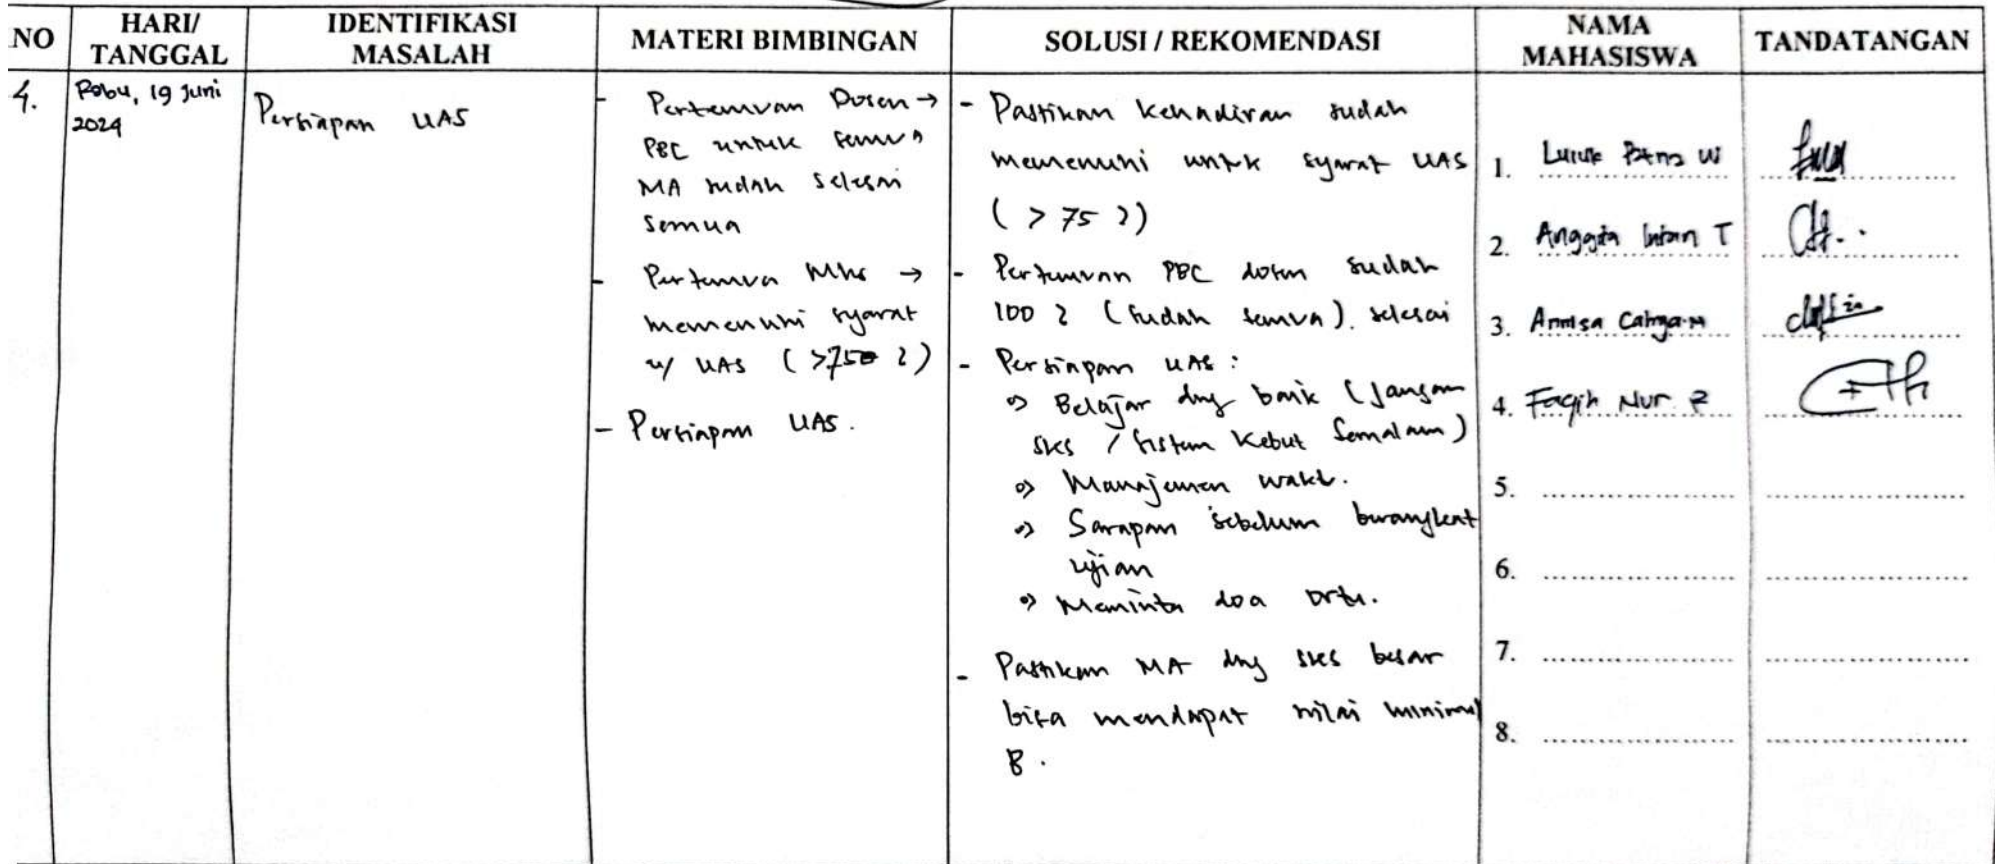 NO
HARI/
TANGGAL
IDENTIFIKASI
MASALAH
MATERI BIMBINGAN
SOLUSI / REKOMENDASI
NAMA
MAHASISWA
TANDATANGAN
4.
Rabu, 19 Juni
2024
Persiapan UAS
- Pertemuan Dosen →
PBC untuk semua
MA sudah selesai
semua
- Pertemua Mhs →
memenuhi syarat
u/ UAS ( >75 % )
- Persiapan UAS.
- Pastikan kehadiran sudah
memenuhi untk syarat UAS
( > 75 % )
- Pertemuan PBC dosen sudah
100 % (sudah semua). selesai
- Persiapan UAS :
Belajar dng baik (Jangan
SKS / Sistem Kebut Semalam)
Manajemen wakt.
Sarapan sebelum berangkat
ujian
Meminta doa ortu.
- Pastikan MA dng sks besar
bisa mendapat nilai minimal
B.
1.
2. Anggita Intan T
3. Annisa
4. Faqih Nur
5.
6.
7.
8.